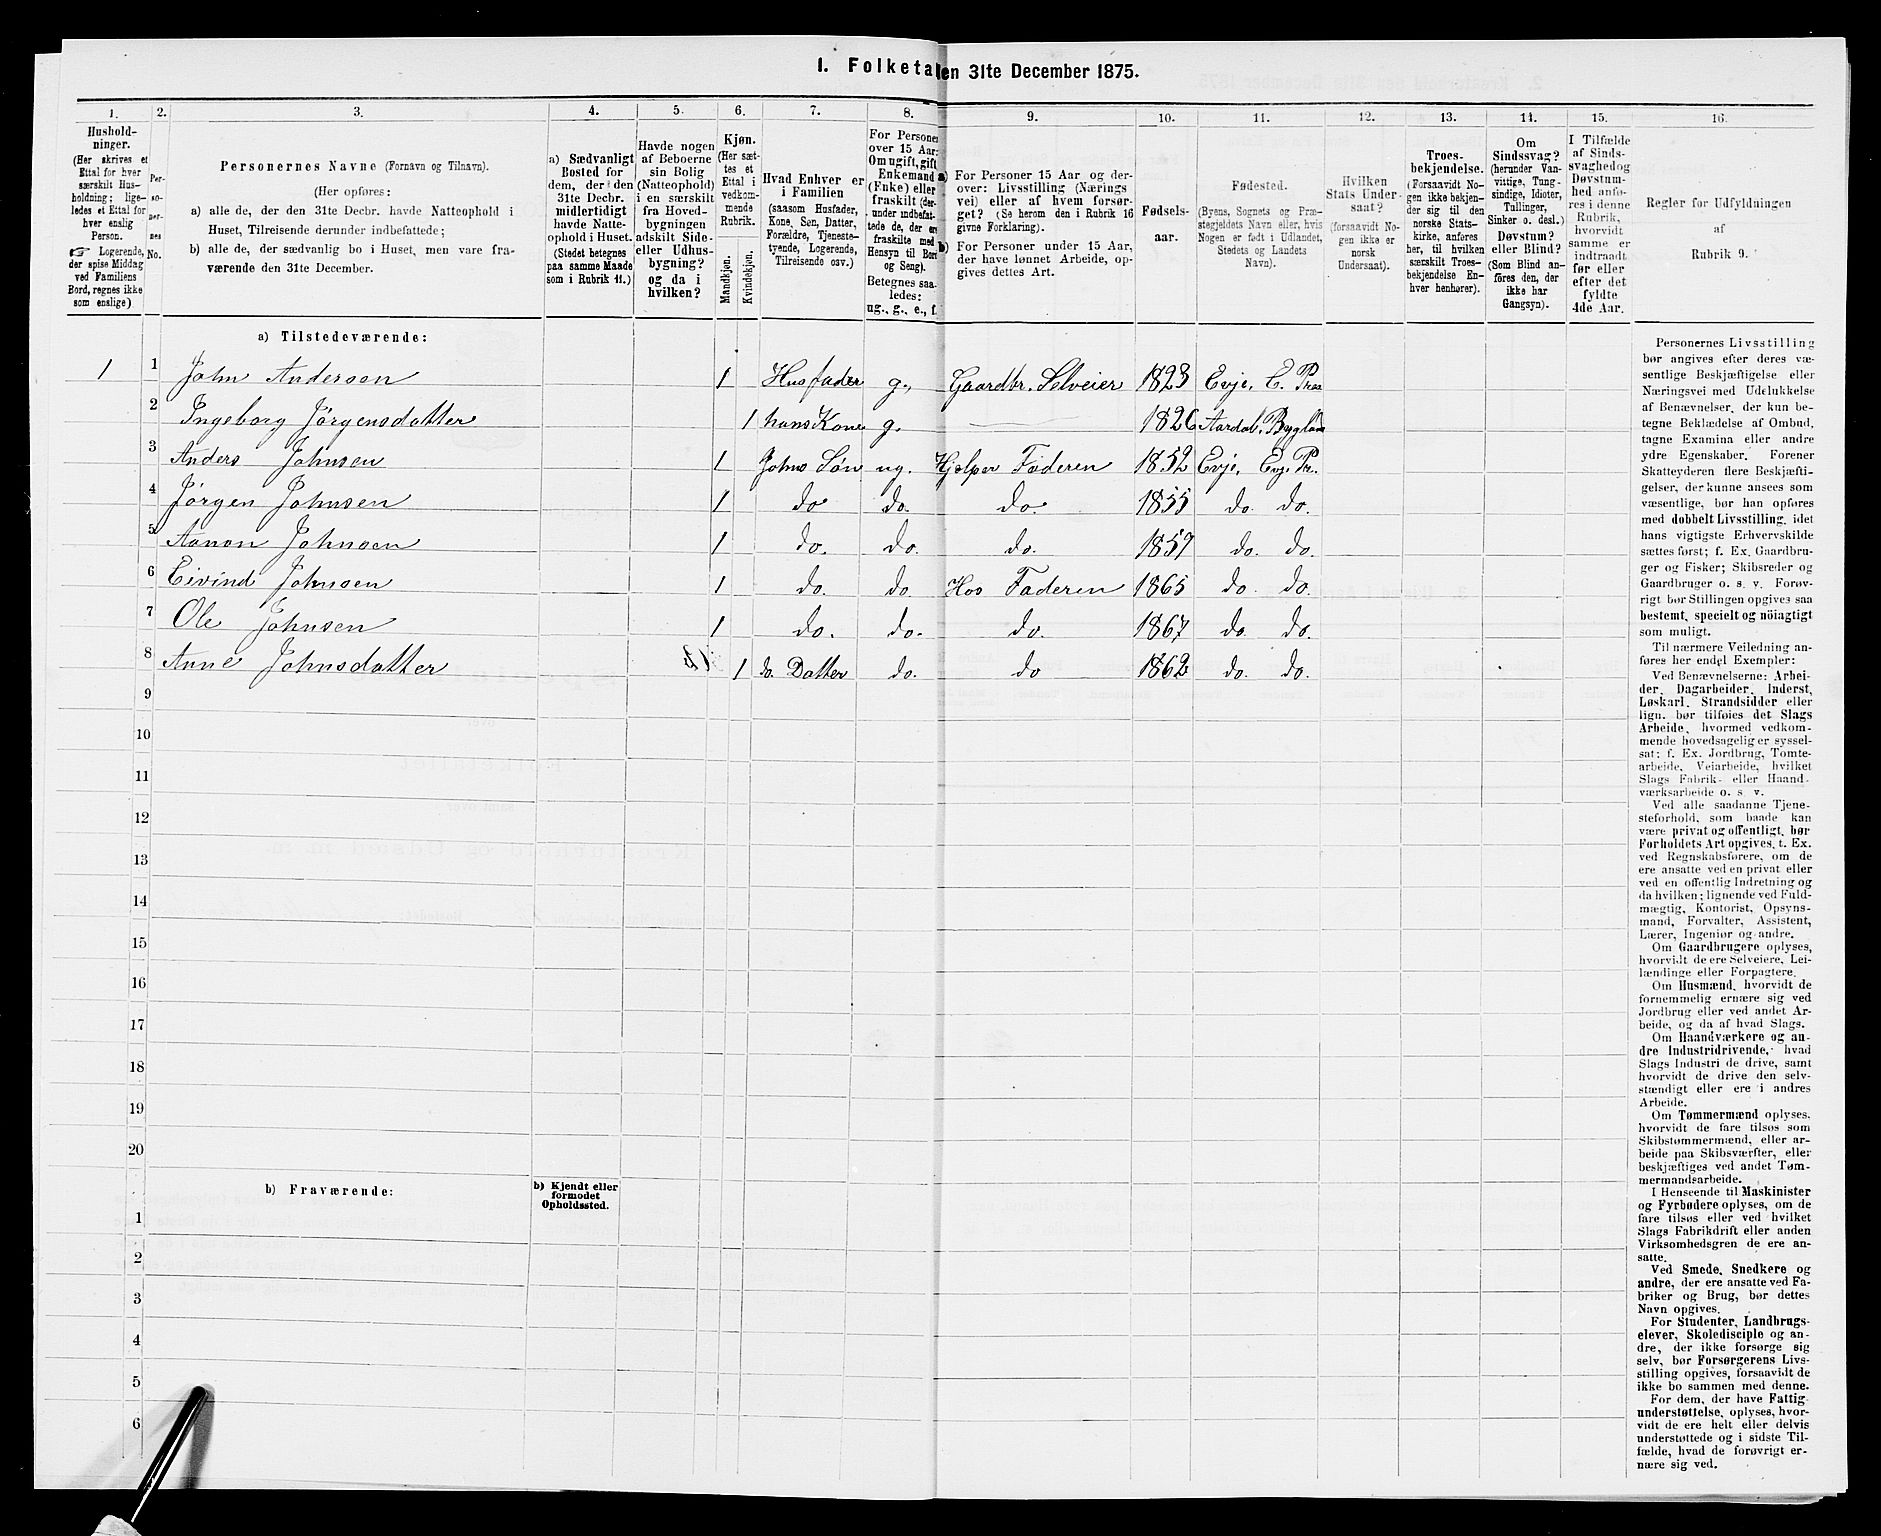 1. Folketallen 31te December 1875.
1.
2.
3.
4.
5.
6.
7.
8.
9.
10.
11.
12.
13.
14.
15.
16.
Hushold-
ninger.
(Her skrives et
Ettal for hver
særskilt Hus-
holdning; lige-
ledes et Ettal for
hver enslig
Person.
☞ Logerende,
der spise Middag
ved Familiens
Bord, regnes ikke
som enslige)
Per-
so-
ner-
nes
No.
Personernes Navne (Fornavn og Tilnavn).
(Her opføres:
a) alle de, der den 31te Decbr. havde Natteophold i
Huset, Tilreisende derunder indbefattede;
b) alle de, der sædvanlig bo i Huset, men vare fra-
værende den 31te December.
a) Sædvanligt
Bosted for
dem, der den
31te Decbr.
midlertidigt
havde Natte-
ophold i Huset.
(Stedet betegnes
paa samme Maade
som i Rubrik 11.)
Havde nogen
af Beboerne
sin Bolig
(Natteophold)
i en særskilt
fra Hoved-
bygningen
adskilt Side-
eller Udhus-
bygning?
og da i
hvilken?
Kjøn.
(Her sæt-
tes et
Ettal i
vedkom-
mende
Rubrik.
Mandkjøn.
Kvindekjøn.
Hvad Enhver er
i Familien
(saasom Husfader,
Kone, Søn, Datter,
Forældre, Tjeneste-
tyende, Logerende,
Tilreisende osv.)
For Personer
over 15 Aar:
Om ugift, gift,
Enkemand
(Enke) eller
fraskilt (der-
under indbefat-
tede de, der ere
fraskilte med
Hensyn til Bord
og Seng).
Betegnes saa-
ledes:
ug., g., e., f.
a) For Personer 15 Aar og der-
over: Livsstilling (Nærings
vei) eller af hvem forsør-
get? (Se herom den i Rubrik 16
givne Forklaring).
b) For Personer under 15 Aar,
der have lønnet Arbeide, op-
gives dettes Art.
Fødsels-
aar.
Fødested.
(Byens, Sognets og Præ-
stegjeldets Navn eller, hvis
Nogen er født i Udlandet,
Stedets og Landets
Navn).
Hvilken
Stats Under-
saat?
(forsaavidt No-
gen ikke er
norsk
Undersaat).
Troes-
bekjendelse.
(Forsaavidt No-
gen ikke bekjen-
der sig til den
norske Stats-
kirke, anføres
her, til hvilken
særskilt Troes-
bekjendelse En-
hver henhører).
Om
Sindssvag?
(herunder Van-
vittige, Tung-
sindige, Idioter,
Tullinger,
Sinker o. desl.)
Døvstum?
eller Blind?
(Som Blind an-
føres den, der
ikke har
Gangsyn).
I Tilfælde
af Sinds-
svaghed og
Døvstum-
hed anfø-
res i denne
Rubrik,
hvorvidt
samme er
indtraadt
før eller
efter det
fyldte
4de Aar.
Regler for Udfyldningen
af
Rubrik 9.
a) Tilstedeværende:
1 1 John Andersen 1 Husfader g., Gaardbr. Selveier 1823 Evje, E. Præs
2 Ingeborg Jørgensdatter 1 hans Kone g. — 1826 Aardal, Bygland
3 Anders Johnsen 1 Johns Søn ug. Hjelper Faderen 1852 Evje, Evje Pr.
4 Jørgen Johnsen 1 do do. do. 1855 do. do.
5 Aanon Johnsen 1 do. do. do. 1857 do. do.
6 Eivind Johnsen 1 do. do. Hos Faderen 1865 do. do.
7 Ole Johnsen 1 do. do. do. 1867 do. do.
8 Anne Johnsdatter 1 do. Datter do. do 1862 do. do.
9
10
11
12
13
14
15
16
17
18
19
20
b) Fraværende:
b) Kjendt eller
formodet
Opholdssted.
1
2
3
4
5
6
Personernes Livsstilling
bør angives efter deres væ-
sentlige Beskjæftigelse eller
Næringsvei med Udelukkelse
af Benævnelser, der kun be-
tegne Beklædelse af Ombud,
tagne Examina eller andre
ydre Egenskaber. Forener
Skatteyderen flere Beskjæfti-
gelser, der kunne ansees som
væsentlige, bør han opføres
med dobbelt Livsstilling, idet
hans vigtigste Erhvervskilde
sættes først; f. Ex. Gaardbru-
ger og Fisker; Skibsreder og
Gaardbruger o. s. v. Forøv-
rigt bør Stillingen opgives saa
bestemt, specielt og nöiagtigt
som muligt.
Til nærmere Veiledning an-
føres her endel Exempler:
Ved Benævnelserne: Arbei-
der, Dagarbeider, Inderst,
Løskarl, Strandsidder eller
lign. bør tilføies det Slags
Arbeide, hvormed vedkom-
mende hovedsagelig er syssel-
sat; f. Ex. Jordbrug, Tomte-
arbeide, Veiarbeide, hvilket
Slags Fabrik- eller Haand-
værksarbeide o. s. v.
Ved alle saadanne Tjene-
steforhold, som baade kan
være privat og offentligt, bør
Forholdets Art opgives, t. Ex.
ved Regnskabsførere, om de
ere ansatte ved en privat eller
ved en offentlig Indretning og
da hvilken; lignende ved Fuld-
mægtig, Kontorist, Opsyns-
mand, Forvalter, Assistent,
Lærer, Ingeniør og andre.
Om Gaardbrugere oplyses,
hvorvidt de ere Selveiere, Lei-
lændinge eller Forpagtere.
Om Husmænd, hvorvidt de
fornemmelig ernære sig ved
Jordbrug eller ved andet Ar-
beide, og da af hvad Slags.
Om Haandværkere og an-
dre Industridrivende, hvad
Slags Industri de drive, samt
hvorvidt de drive den selv-
stændigt eller ere i andres
Arbeide.
Om Tømmermænd oplyses,
hvorvidt de fare tilsøs som
Skibstømmermænd, eller ar-
beide paa Skibsværfter, eller
beskjæftiges ved andet Tøm-
mermandsarbeide.
I Henseende til Maskinister
og Fyrbødere oplyses, om de
fare tilsøs eller ved hvilket
Slags Fabrikdrift eller anden
Virksomhedsgren de ere an-
satte.
Ved Smede, Snedkere og
andre, der ere ansatte ved Fa-
briker og Brug, bør dettes
Navn opgives.
For Studenter, Landbrugs-
elever, Skoledisciple og an-
dre, der ikke forsørge sig
selv, bør Forsørgerens Livs-
stilling opgives, forsaavidt de
ikke bo sammen med denne.
For dem, der have Fattig-
understøttelse, oplyses, hvor-
vidt de ere helt eller delvis
understøttede og i sidste Til-
fælde, hvad de forøvrigt er-
nære sig ved.